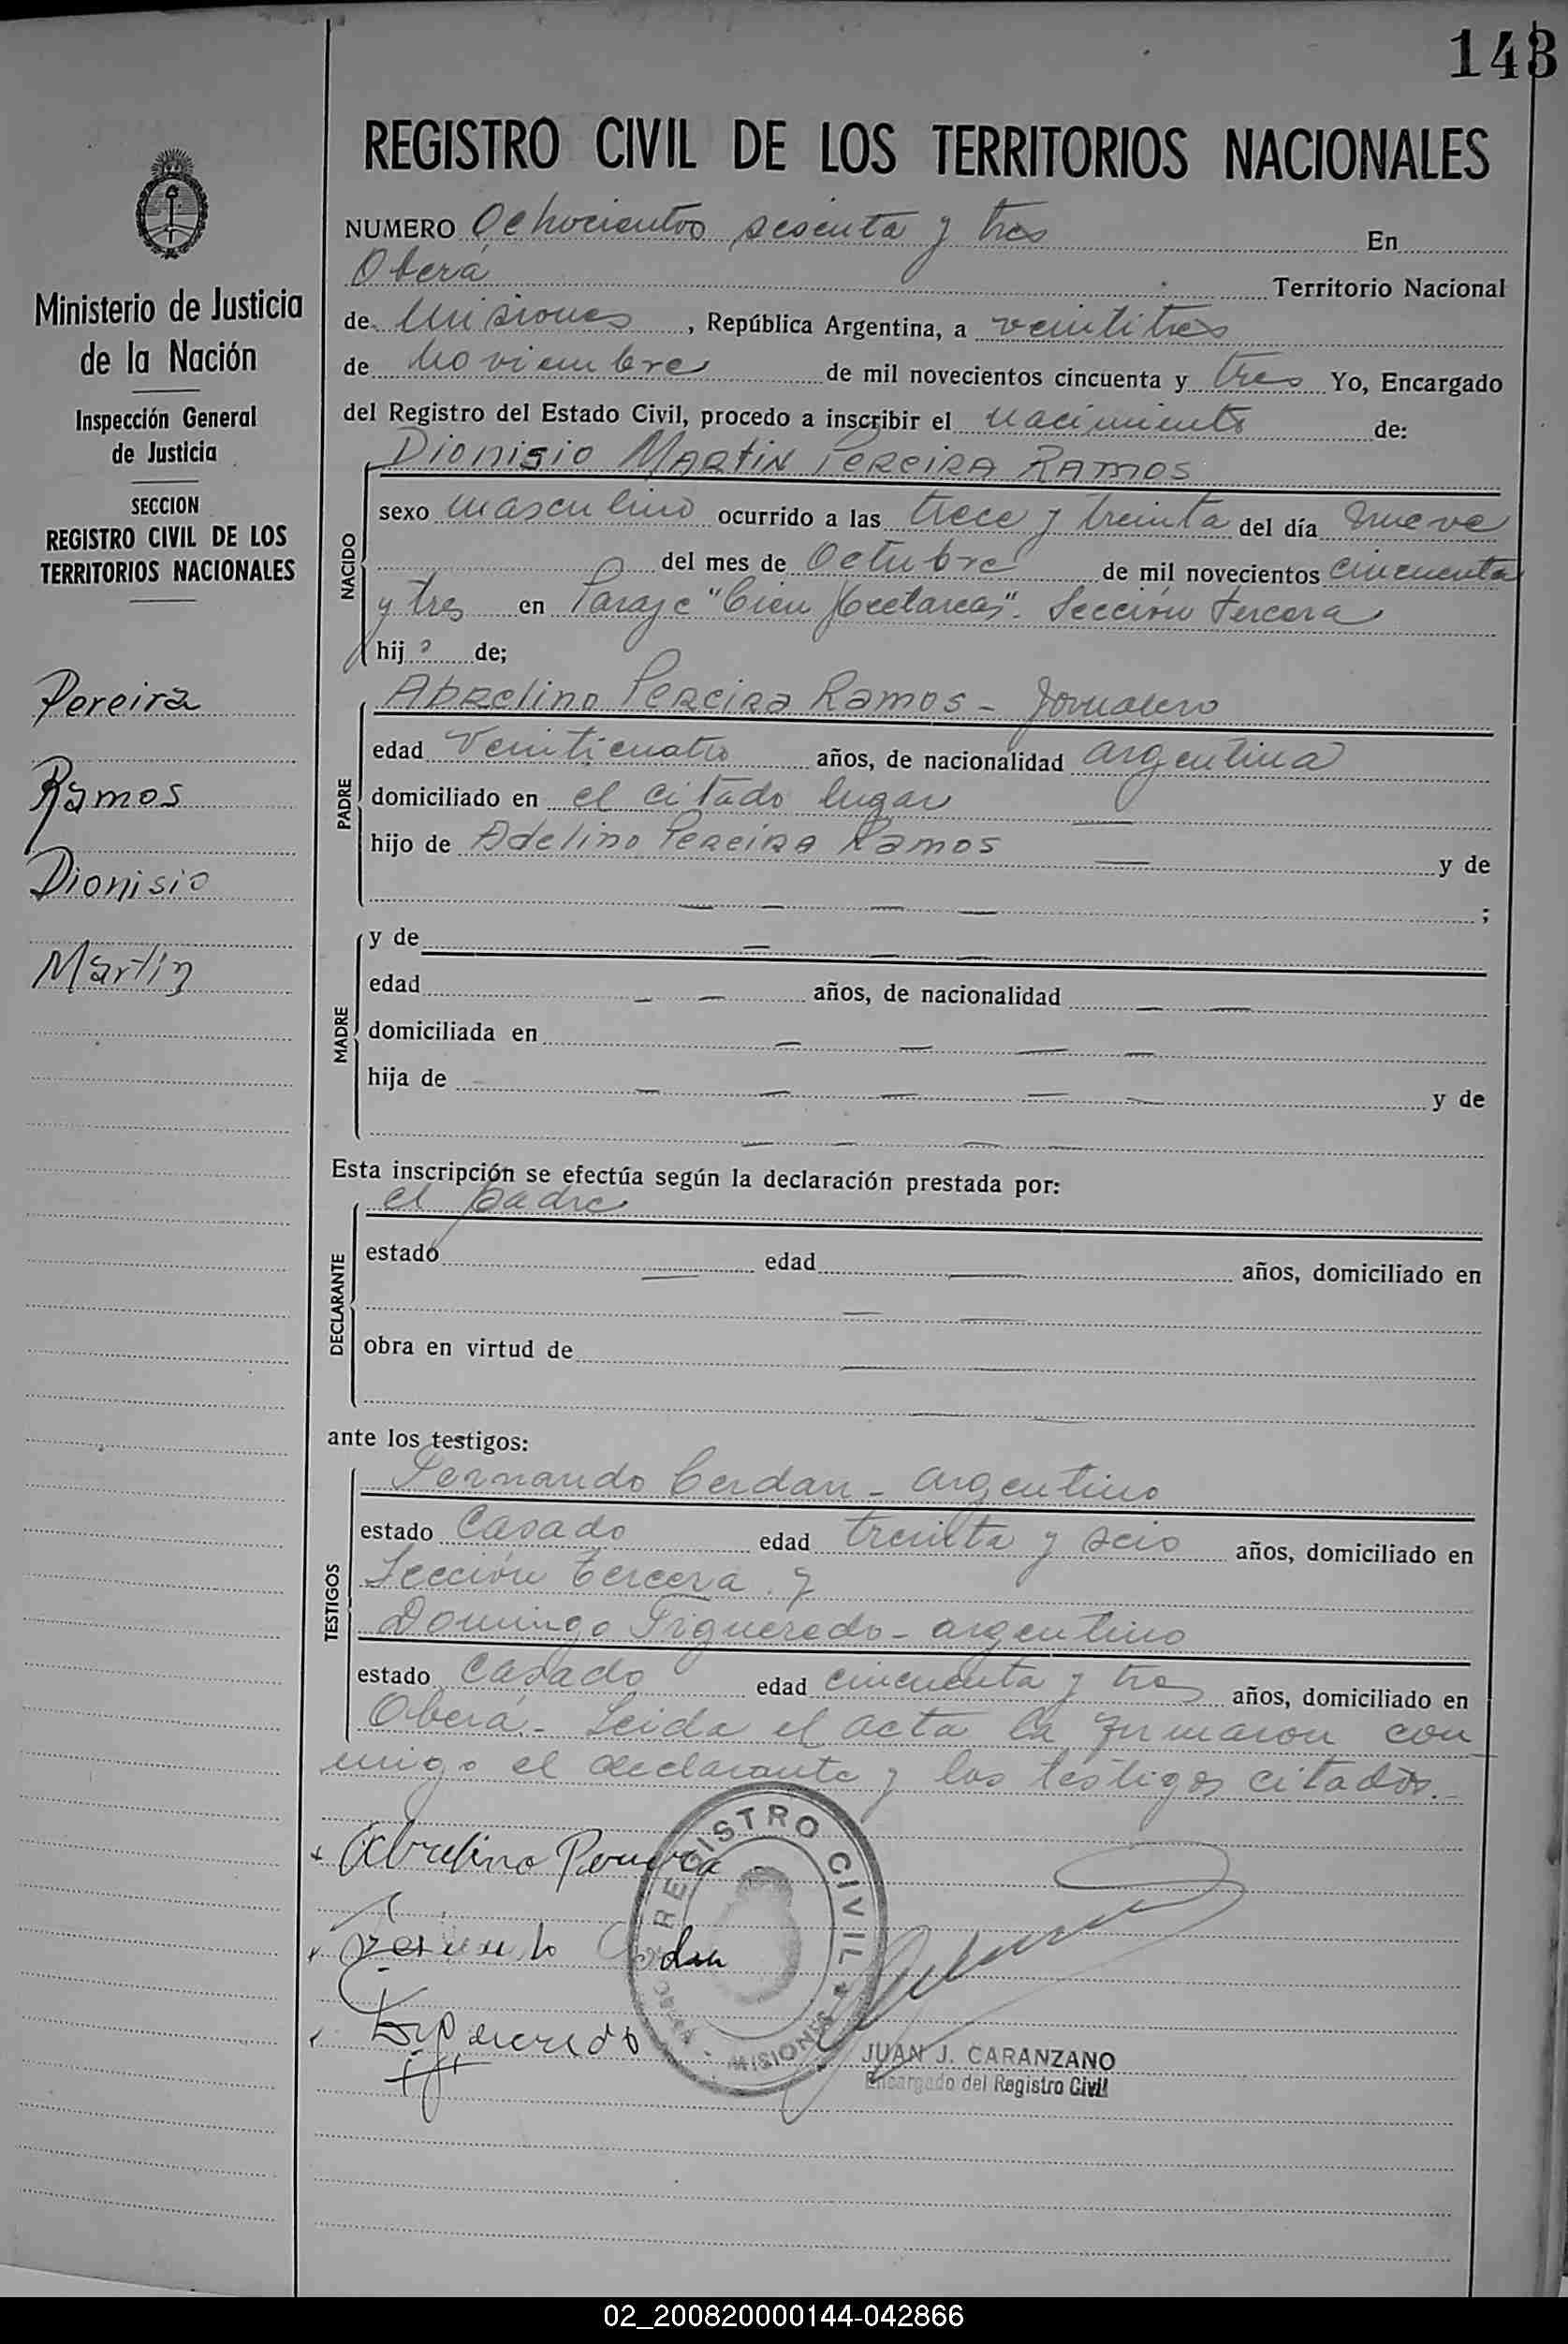 143
REGISTRO CIVIL DE LOS TERRITORIOS NACIONALES
Ministerio de Justicia
de la Nación
Inspección General
de Justicia
SECCION
REGISTRO CIVIL DE LOS
TERRITORIOS NACIONALES
Pereira
Ramos
Dionisio
Martin
NUMERO Ochocientos sesenta y tres En
Oberá Territorio Nacional
de Misiones, República Argentina, a veintitres
de noviembre de mil novecientos cincuenta y tres Yo, Encargado
del Registro del Estado Civil, procedo a inscribir el nacimiento de:
Dionisio Martin Pereira Ramos
NACIDO
sexo masculino ocurrido a las trece y treinta del día nueve
del mes de Octubre de mil novecientos cincuenta
y tres en Paraje "Cien Hectareas". Sección tercera
hijo de;
PADRE
Abrelino Pereira Ramos - Jornalero
edad Veinticuatro años, de nacionalidad argentina
domiciliado en el citado lugar
hijo de Adelino Pereira Ramos y de
;
MADRE
y de
edad años, de nacionalidad
domiciliada en
hija de y de
Esta inscripción se efectúa según la declaración prestada por:
el padre
DECLARANTE
estado edad años, domiciliado en
obra en virtud de
ante los testigos:
TESTIGOS
Fernando Cerdan - argentino
estado Casado edad treinta y seis años, domiciliado en
Sección tercera y
Domingo Figueredo - argentino
estado Casado edad cincuenta y tres años, domiciliado en
Oberá - Leida el acta la firmaron con
migo el declarante y los testigos citados.-
Abrelino Pereira
Figueredo
REGISTRO CIVIL
MISIONES
JUAN J. CARANZANO
Encargado del Registro Civil
02_200820000144-042866